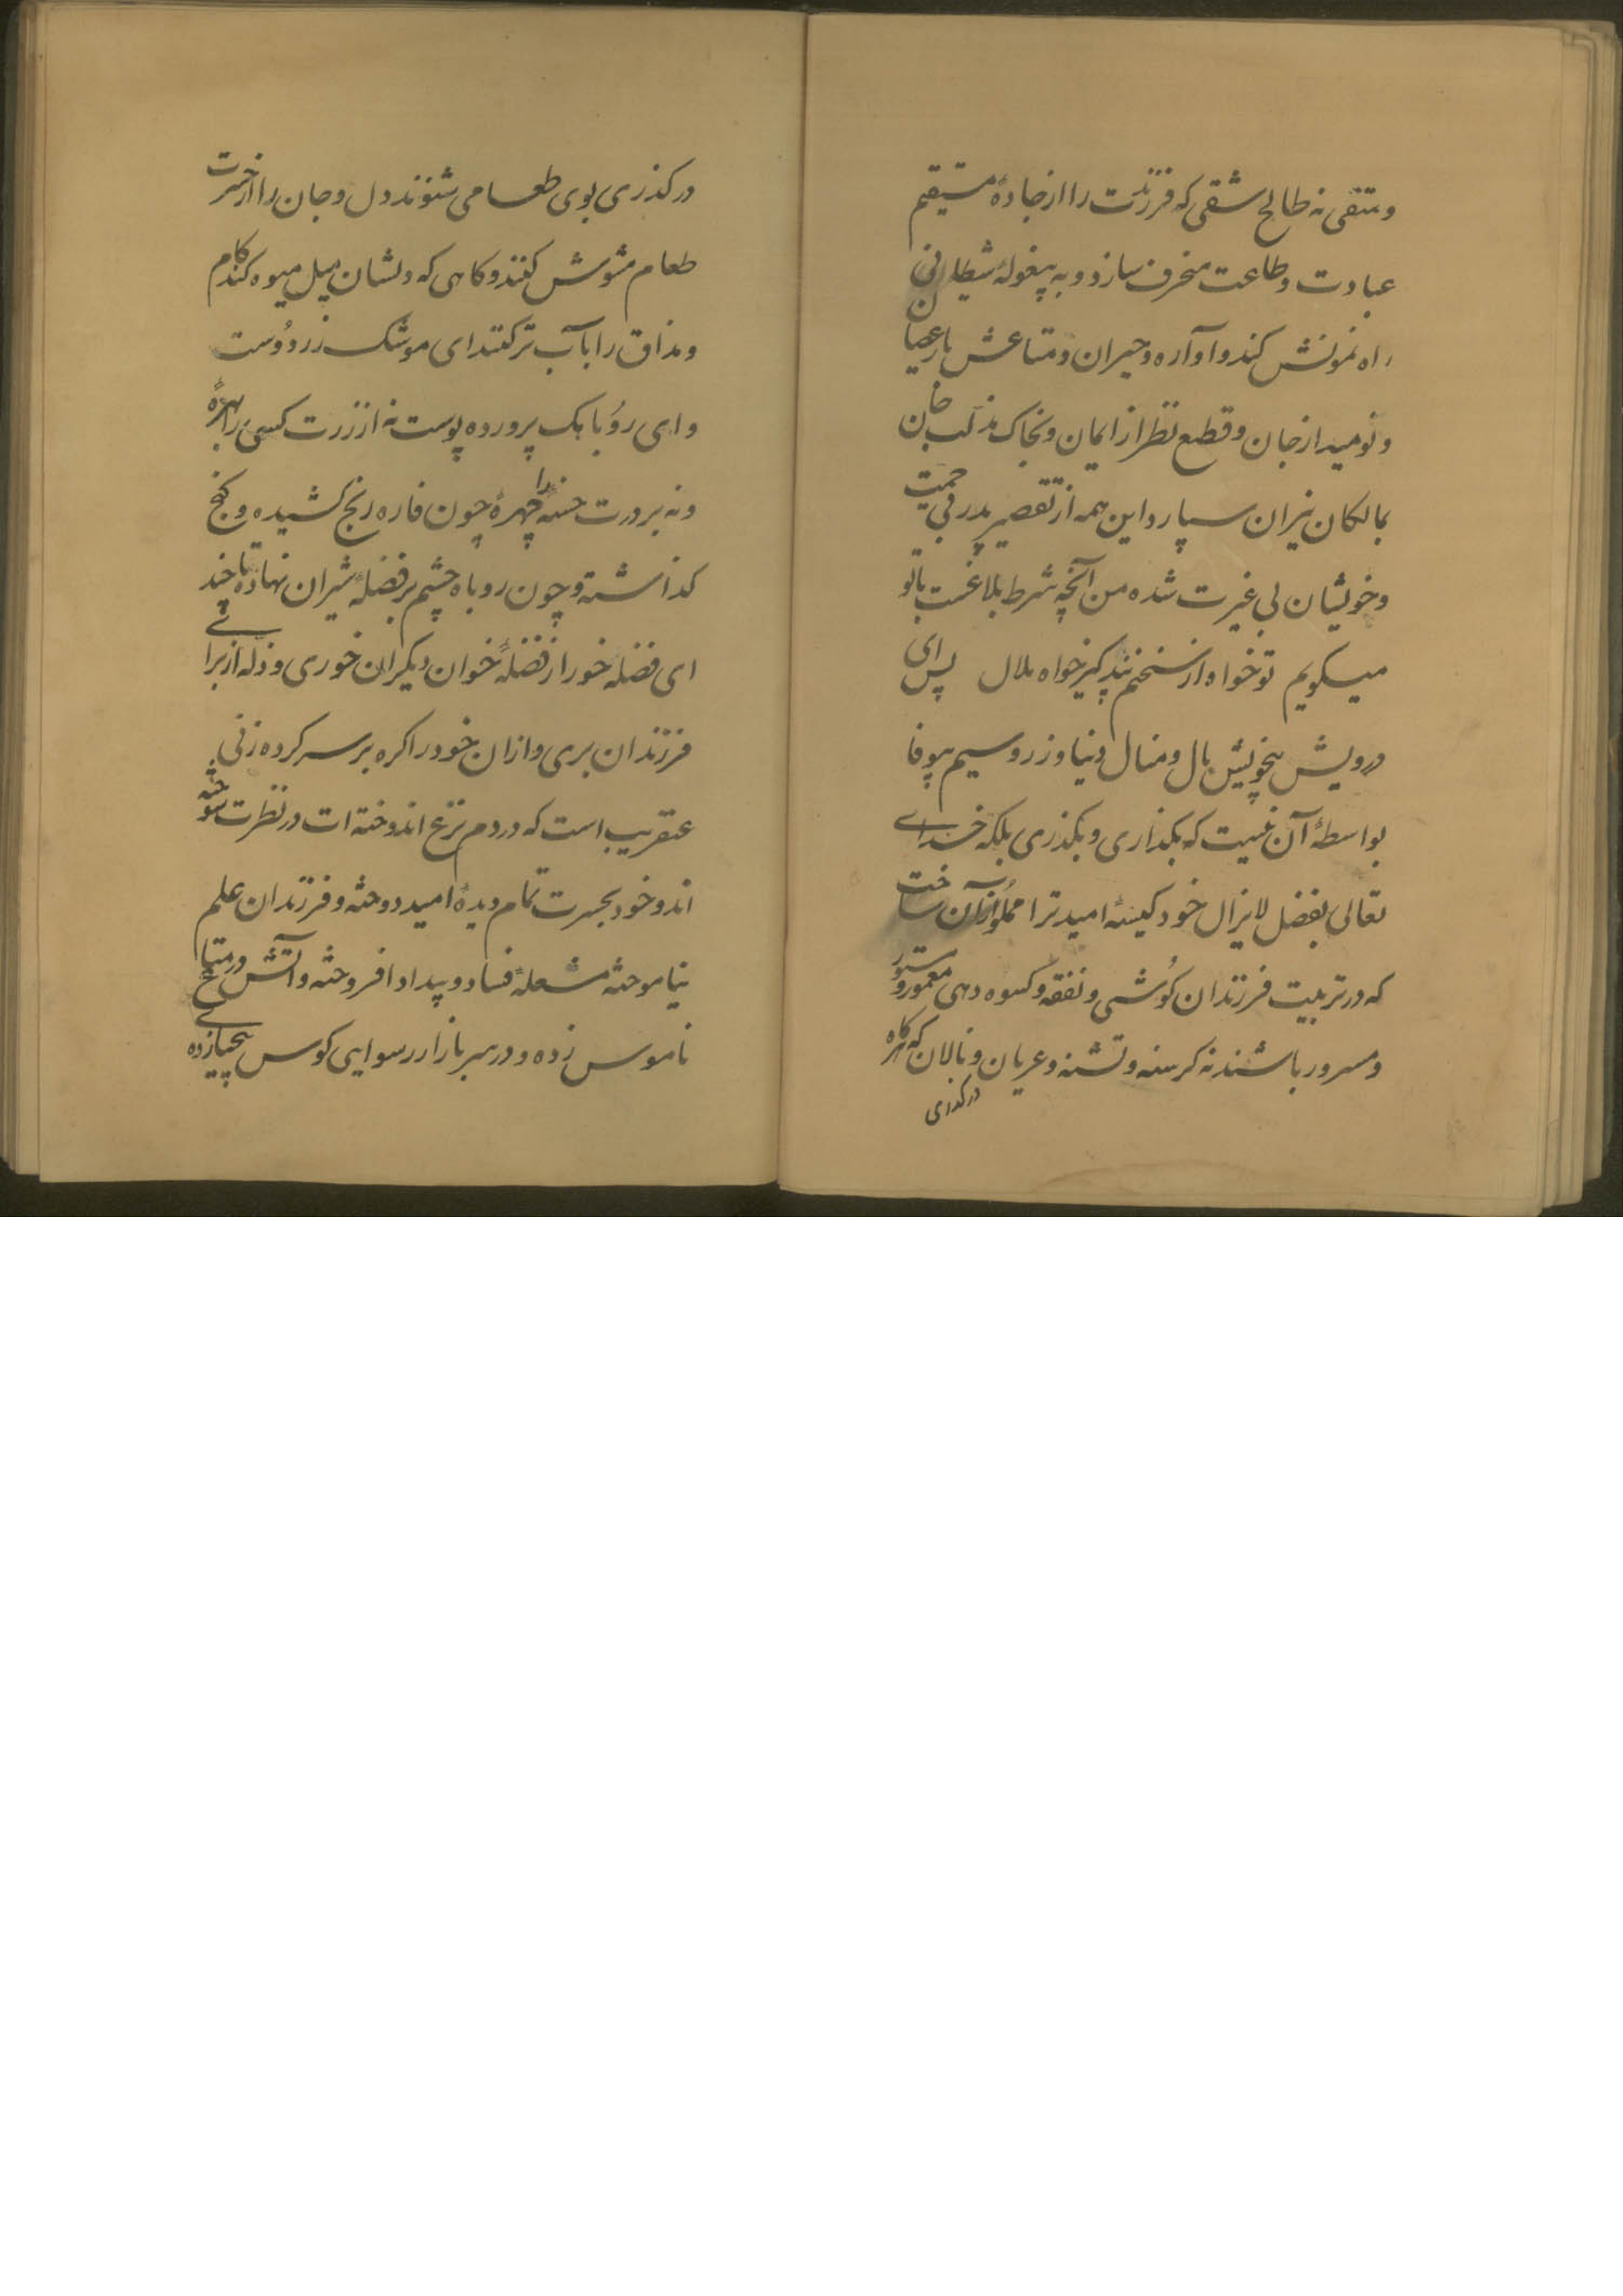 و متقی نه طالح شقی که فرزندت را از جادهٔ مستقیم
عبادت و طاعت منحرف سازد و به پیغولهٔ شیطانی
راه نمونش کند و آواره و حیران و متاعش بار عصیان
و نومید از جان و قطع نظر از ایمان و بخاک مذلت جان
بمالکان نیران سپارد و این همه از تقصیر پدر بی حمیت
و خویشان بی غیرت شده من آنچه شرط بلاغست با تو
میکویم تو خواه از سخنم پند کیر خواه ملال پس ای
درویش بخویش بال و منال دنیا و زر و سیم بیوفا
بواسطهٔ آن نیست که بکذاری و بکذری بلکه خدای
تعالی بفضل لایزال خود کیسهٔ امید ترا مملو ازان ساخت
که در تربیت فرزندان کوشی و نفقه و کسوه دهی معمور و مستور
و مسرور باشند نه کرسنه و تشنه و عریان و نالان که هر کاه
در کذری
در کذری بوی طعامی شنوند دل و جان را از حسرت
طعام مشوش کنند و کاهی که دلشان میل میوه کند کام
و مذاق را بآب تر کنند ای موشک زر دوست
و ای روبابک پرورده پوست نه از زرت کسی را بهرهٔ
و نه بر درت خستهٔ را چهرهٔ چون فاره رنج کشیده و کنج
کذاشته و چون روباه چشم بر فضلهٔ شیران نهاده تا چند
ای فضله خور از فضلهٔ خوان دیکران خوری و زله از برای
فرزندان بری و ازان خود را کره بر سر کره زنی
عنقریب است که در دم نزع اندوخته ات در نظرت سوخته
اند و خود بحسرت تمام دیدهٔ امید دوخته و فرزندان علم
نیاموخته مشعلهٔ فساد و بیداد افروخته و آتش در متاع
ناموس زده و در سر بازار رسوایی کوس بیحیایی زده